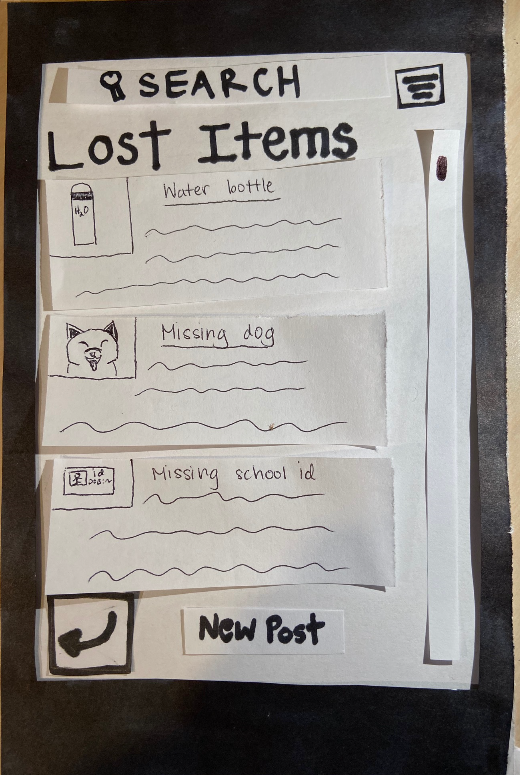 SEARCH
Lost Items
Water bottle
H₂O
Missing dog
Missing school id
id
New Post